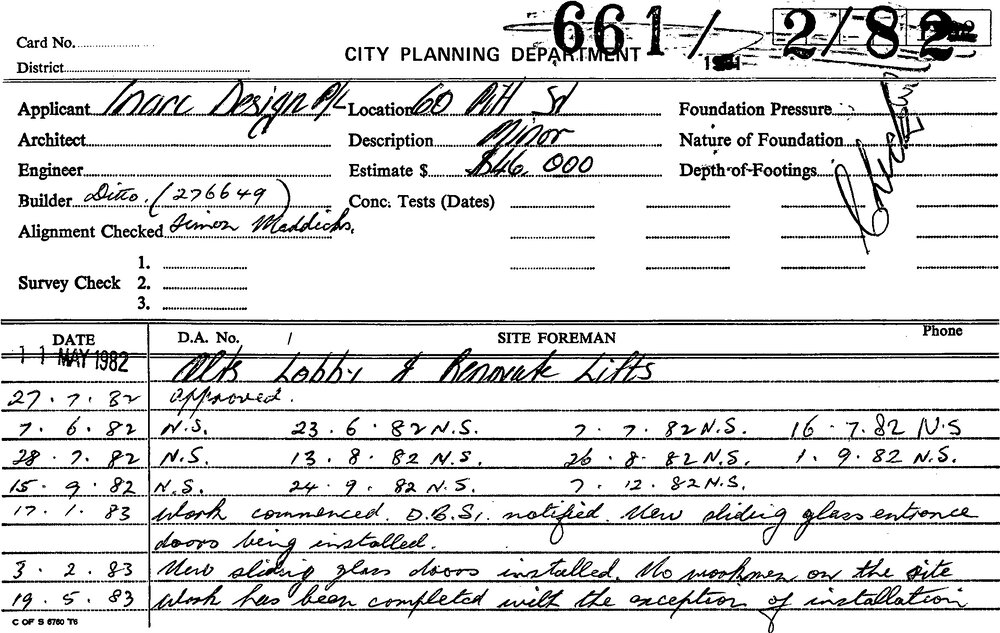 661 / 2/82
Card No.
CITY PLANNING DEPARTMENT
District
Applicant Inarc Design P/L Location 60 Pitt St Foundation Pressure
Architect Description Minor Nature of Foundation
Engineer Estimate $ $46,000 Depth-of-Footings
Builder Ditto. (276649) Conc. Tests (Dates)
Alignment Checked Simon Maddicks.
1.
Survey Check 2.
3.
DATE D.A. No. / SITE FOREMAN Phone
11 MAY 1982 Alts Lobby & Renovate Lifts
27.7.82 Approved.
7.6.82 N.S. 23.6.82 N.S. 7.7.82 N.S. 16.7.82 N.S
28.7.82 N.S. 13.8.82 N.S. 26.8.82 N.S. 1.9.82 N.S.
15.9.82 N.S. 24.9.82 N.S. 7.12.82 N.S.
17.1.83 Work commenced. D.B.S. notified. New sliding glass entrance
doors being installed.
3.2.83 New sliding glass doors installed. No workmen on the site
19.5.83 Work has been completed with the exception of installation
C OF S 6760 T6